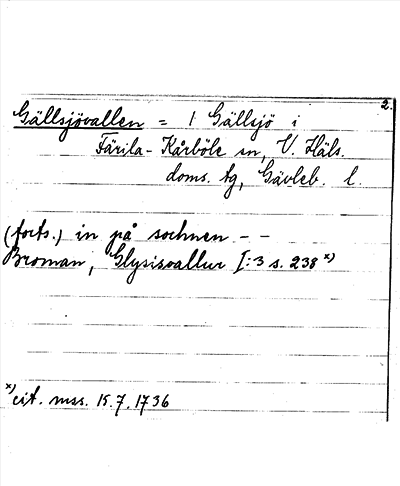 2.
Gällsjövallen = 1 Gällsjö i
Färila-Kårböle sn, V. Häls.
doms. tg, Gävleb. l.
(forts.) in på sochnen - -
Broman, Glysisvallur I:3 s. 238 x)
x) cit. mss. 15.7.1736